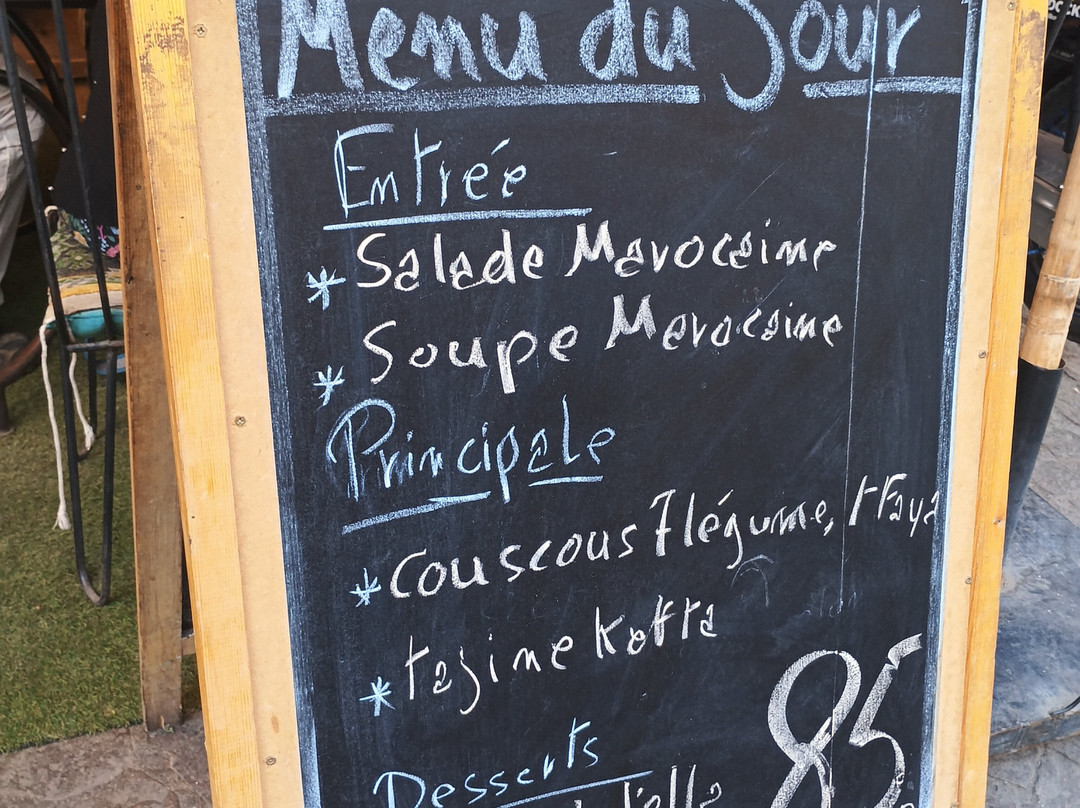 Menu du Jour
Entrée
* Salade Marocaine
* Soupe Marocaine
Principale
* Couscous 7 légume, tFaya
* tajine kefta
85
Desserts